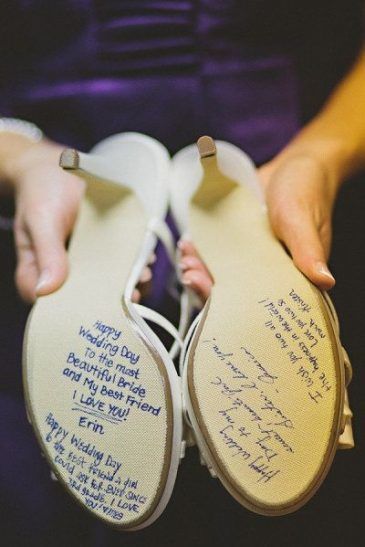 Happy
Wedding Day
To the most
Beautiful Bride
and My Best Friend
I LOVE YOU!
Erin
Happy Wedding Day
to the best friend a girl
could ask for. EVER SINCE
3rd grade. I LOVE
YOU
I wish you two all
the happiness in the world!
Love you
much,
Happy Wedding
Day to my
Sister! I
love you!